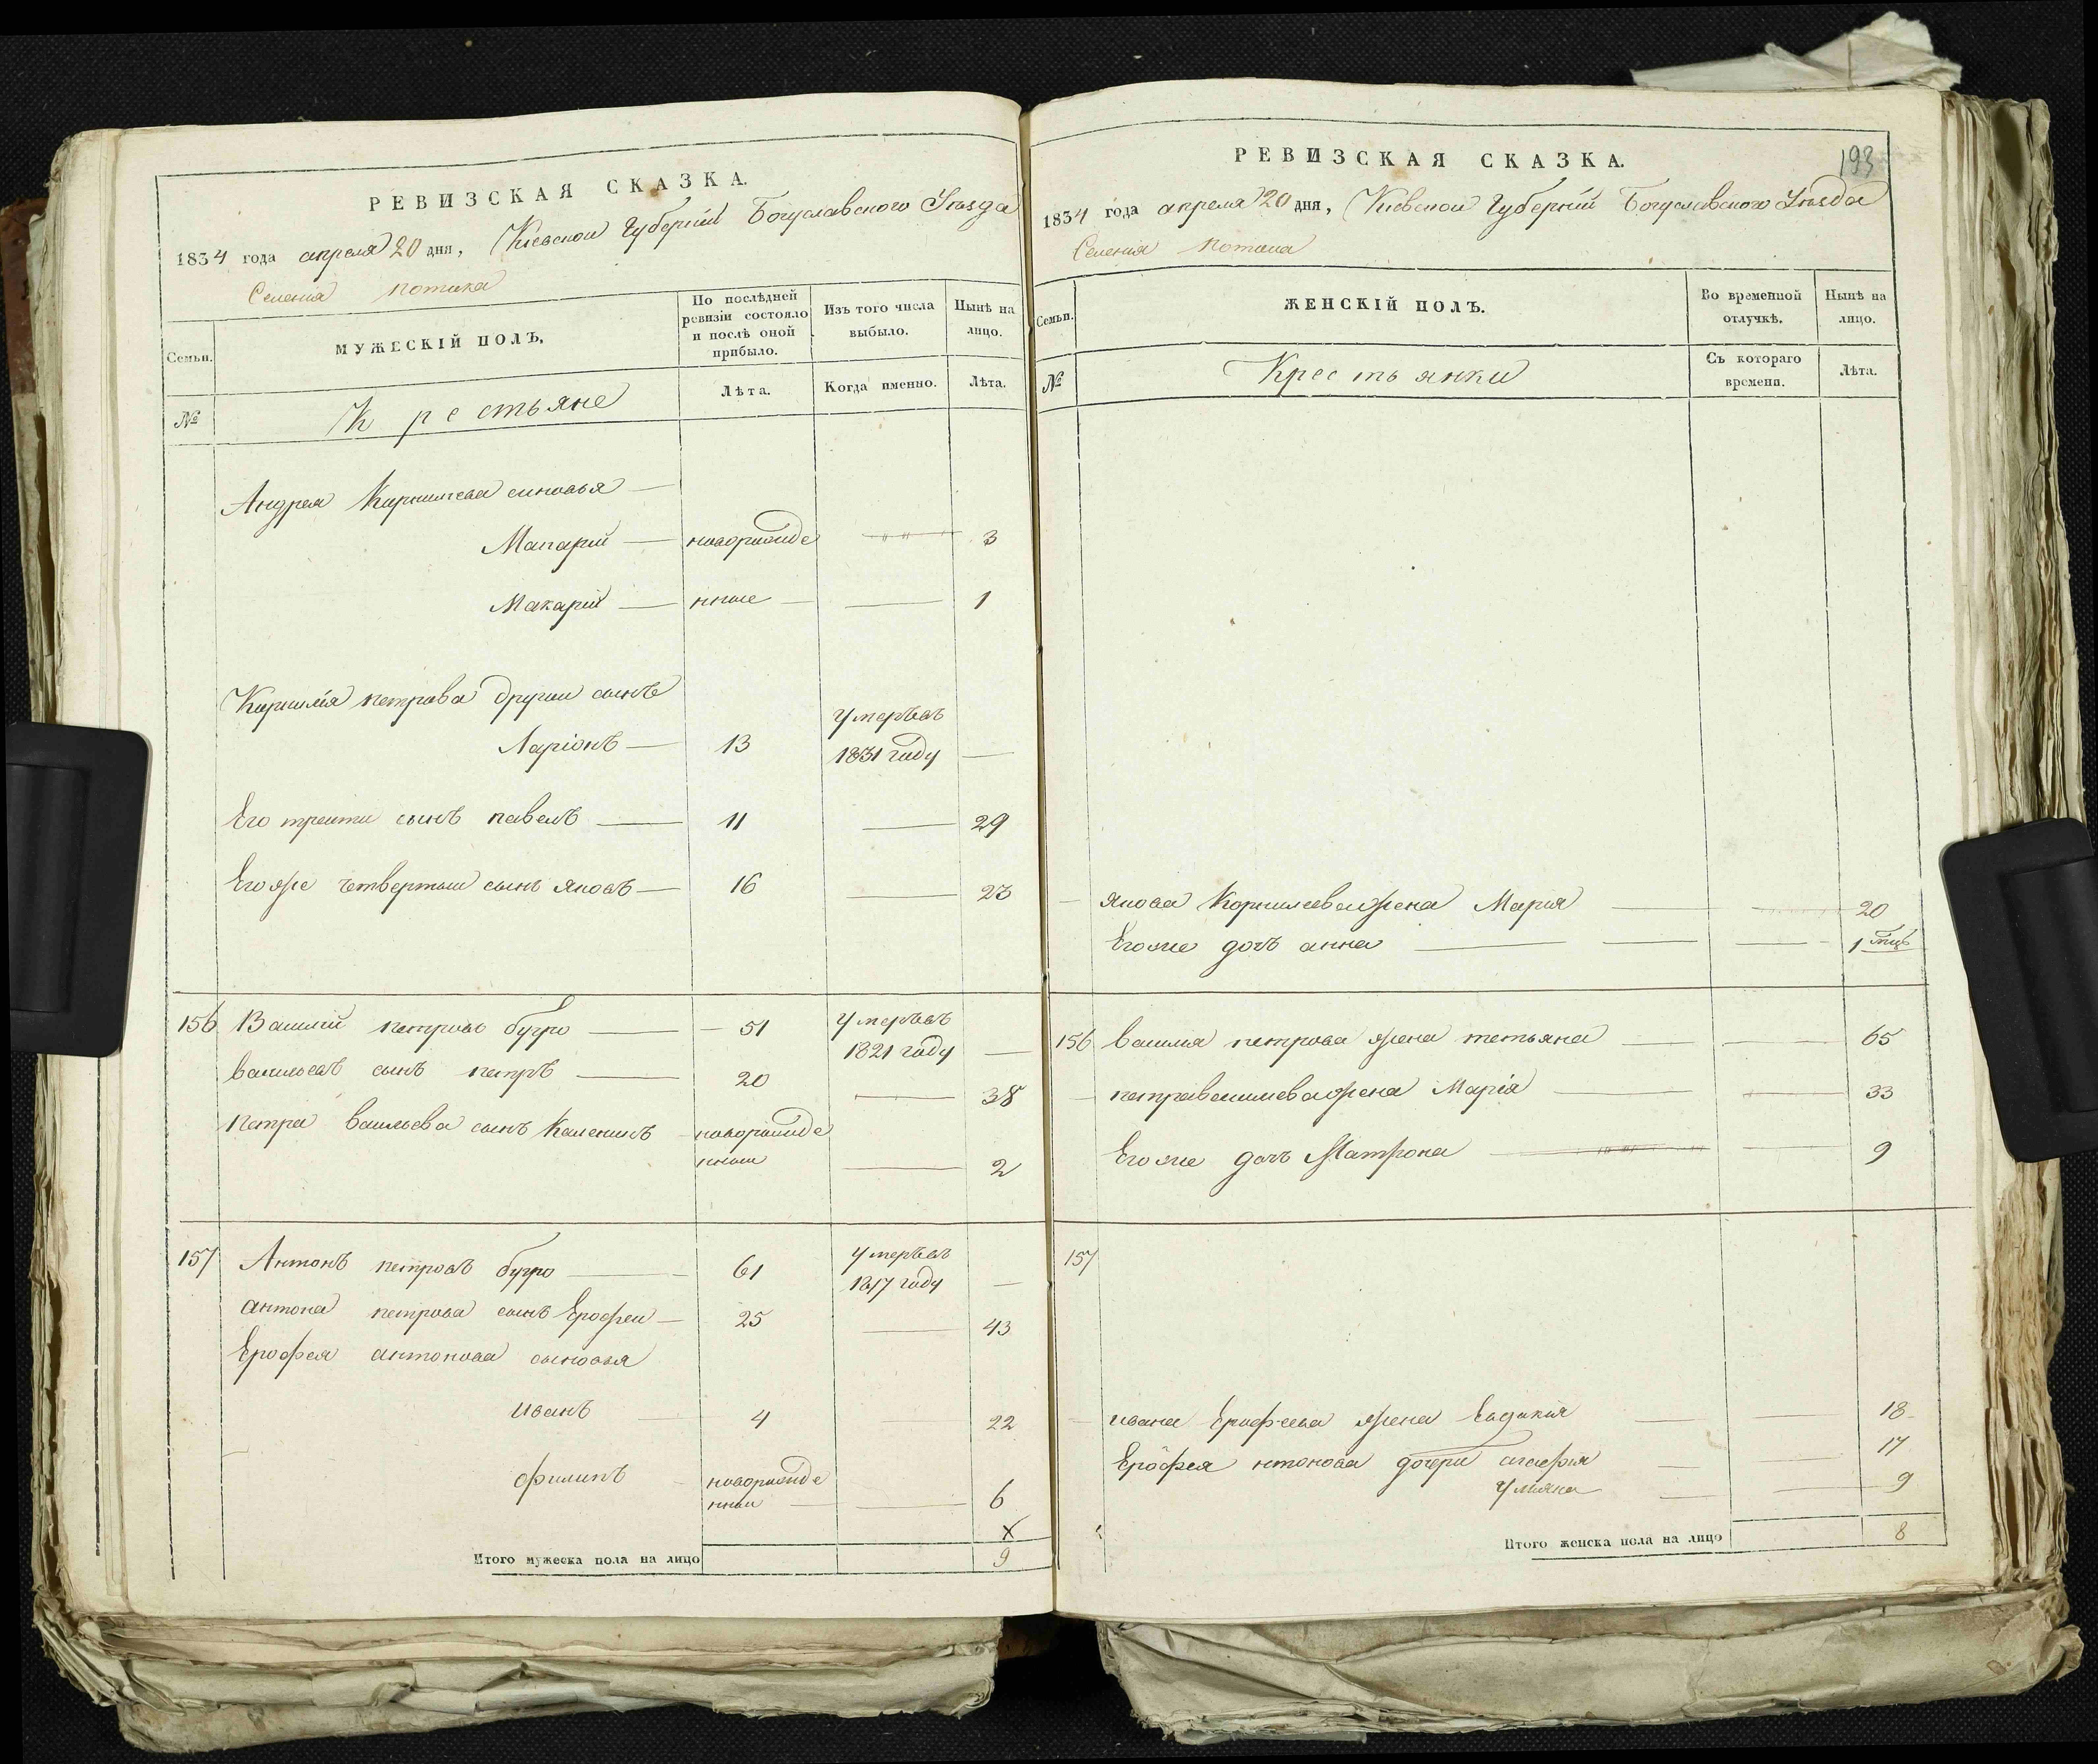 РЕВИЗСКАЯ СКАЗКА.
1834 года апреля 20 дня, Киевской Губернии Богуславского Уезда
Селения потока
Семьи.
МУЖЕСКІЙ ПОЛЪ.
По послѣдней ревизіи состояло и послѣ оной прибыло.
Изъ того числа выбыло.
Нынѣ на лицо.
№
Крестьяне
Лѣта.
Когда именно.
Лѣта.
Андрея Корнилева синовья
Макарий новорожде 3
Макарий нные 1
Корнилія петрова другой сынъ
Ларіонъ 13 умеръвъ 1831 году
Его трети сынъ павелъ 11 29
Его же четвертый сынъ яковъ 16 23
156 Василий петровъ бугро 51 умеръвъ 1821 году
васильевъ сынъ петръ 20 38
петра васильева сынъ Каленикъ новорожде нный 2
157 Антонъ петровъ бугро 61 умеръвъ 1817 году
антона петрова сынъ Ерофей 25 43
Ерофея антонова сыновья
иванъ 4 22
филипъ новорожде нный 6
Х
Итого мужеска пола на лицо 9
193
РЕВИЗСКАЯ СКАЗКА.
1834 года апреля 20 дня, Киевской Губернии Богуславского Уезда
Селения потока
Семьи.
ЖЕНСКІЙ ПОЛЪ.
Во временной отлучкѣ.
Нынѣ на лицо.
№
Крестьянки
Съ котораго времени.
Лѣта.
якова Корнилева жена Мария 20
Его же дочъ анна 1
156 василя петрова жена тетьяна 65
петра василева жена Маріа 33
Его же дочъ Матрона 9
157
ивана Ерофеева жена Евдокия 18
Ерофея нтонова дочери агафия 17
Улияна 9
Итого женска пола на лицо 8